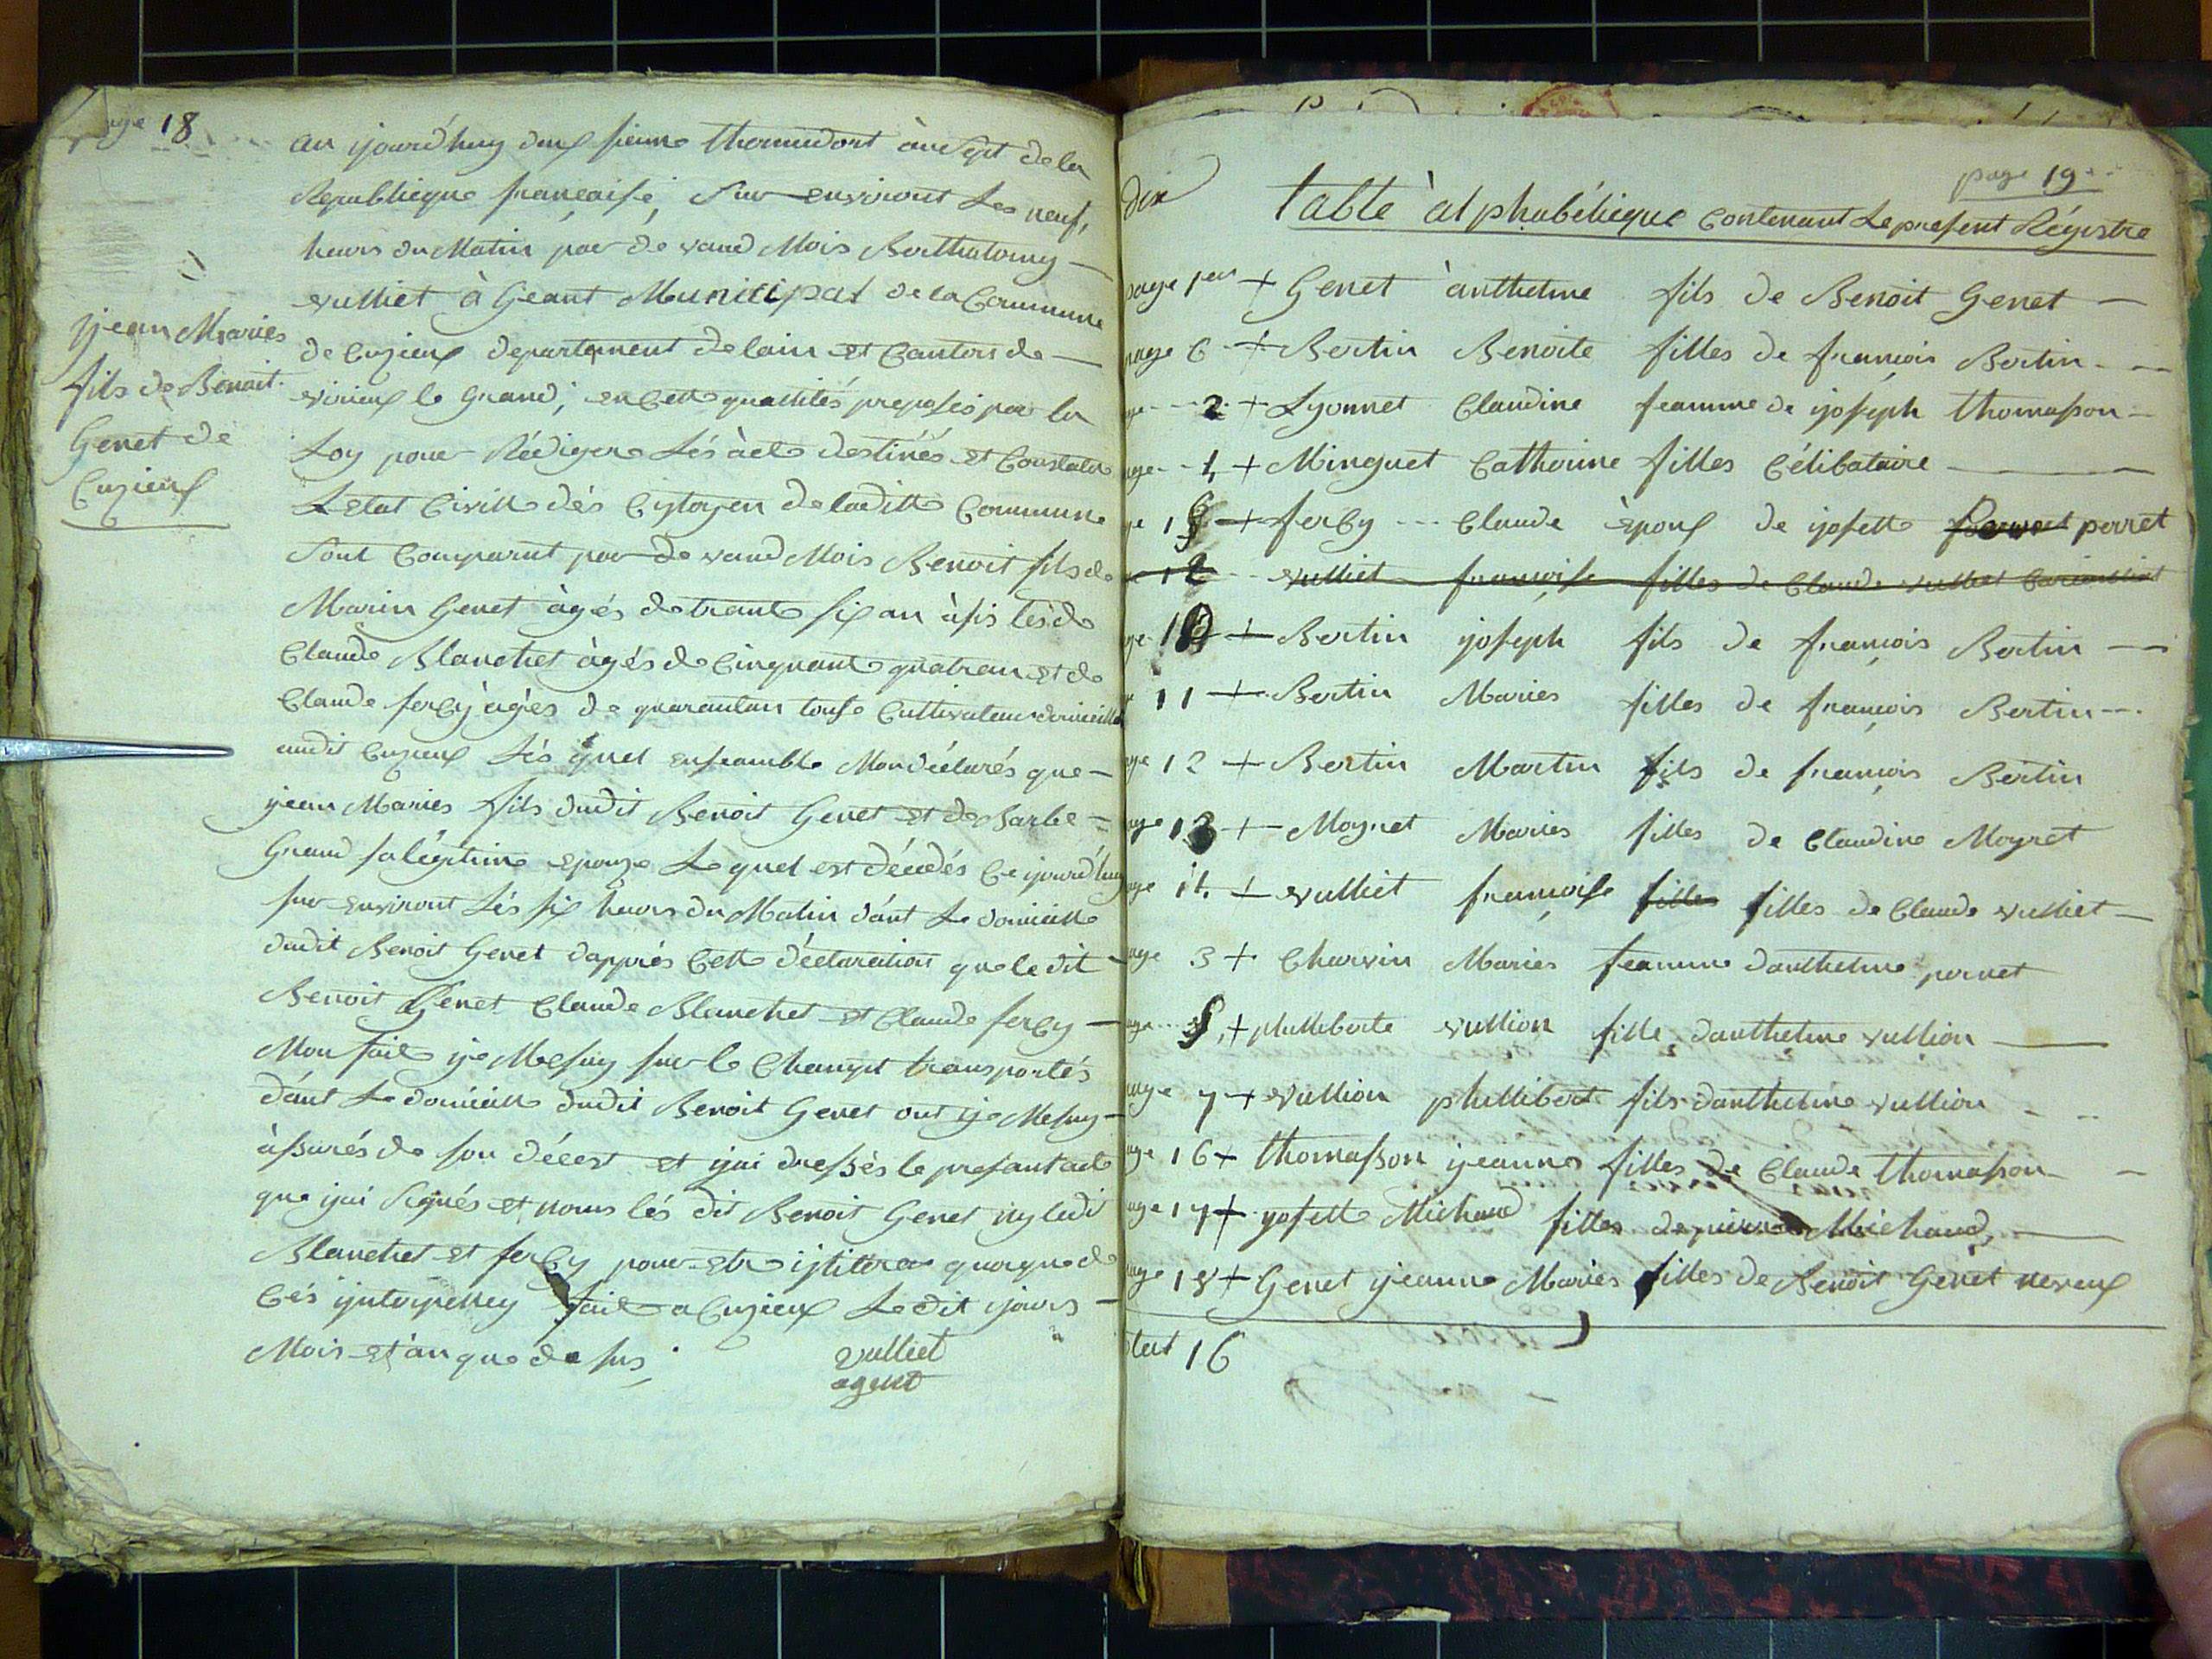 page 18
au ijourd'huy deuxsieme thermidort àn Sept de la
Republicque françaisse; Sur environt Les neuf,
heurs du Matin par de vand Mois Berthelomy
vulliet à Geant Municipal de la Commune
de Cuzieux departement de lain et Cantons de
virieux le Grand; en Cette qualités preposés par la
Loy pour Rédiger Lés àcte destinés et Constater
L'etat Civille dés Cytoyen de laditte Commune
Sont Comparut par de vand Mois Benoit fils de
Marin Genet àgés de trante six an àsistés de
Claude Blanchet àgés de Cinquante quatran et de
Claude ferCy àgés de quarantan tousse Cultivateur domicillé
audit Cuzieux Lés quel enseamble Mon déclarés que
ijean Maries fils dudit Benoit Genet et de Barbe
Grand sa légitime epouze Le quel est décédés Ce ijourd'huy
sur environt Lés six heurs du Matin dánt Le domicille
dudit Benoit Genet dapprés Cette déclaration que le dit
Benoit Genet Claude Blanchet et Claude ferCy
Mon faite ije Mesuy sur le Champt transportés
dánt Le domicille dudit Benoit Genet out ije Mesuy
àssurés de son décest et ijai dressés le presant acte
que ijai Signés et nonus lés dit Benoit Genet ny ledit
Blanchet et ferCy pour etre ijlitera quoyque de
Cés ijnterpelley fait a Cuzieux Le dit ijours
Mois et àn que de sus;
vulliet
agent
ijean Maries
fils de Benoit
Genet de
Cuzieux
page 19
dix
table àlphabéticque Contenant Le present Régistre
page 1er + Genet àntthelme fils de Benoit Genet
page 6 + Bertin Benoite filles de françois Bertin
2 + Lyonnet Claudine feamme de ijoseph thomasson
4 + Minguet Catherine filles Célibataire
+ ferCy Claude Époux de ijosette perret
12 vulliet françoise filles de Claude vulliet
10 + Bertin ijoseph fils de françois Bertin
11 + Bertin Maries filles de françois Bertin
page 12 + Bertin Martin fils de françois Bertin
page 13 + Moyret Maries filles de Claudine Moyret
page 14 + vulliet françoise filles filles de Claude vulliet
page 3 + Charvin Maries feamme danthelme pernet
+ phelliberte vullion fille danthelme vullion
page 7 + vullion phillibert fils danthelme vullion
page 16 + thomasson ijeanne filles de Claude thomasson
page 17 + ijosette Michaud filles de pierre Michaud,
page 18 + Genet ijeanne Maries filles de Benoit Genet neveux
16